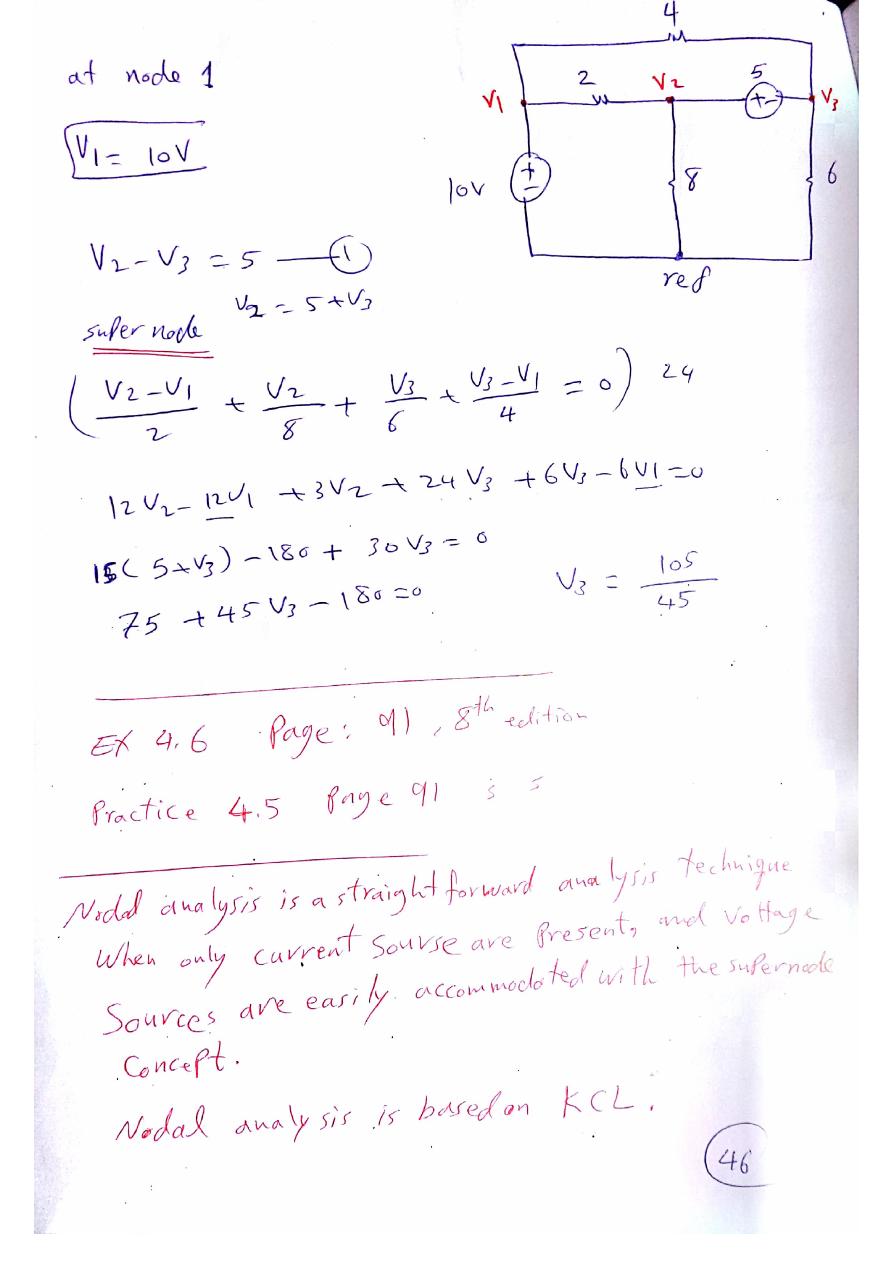 4
at node 1
2 V2 5
V1 + - V3
V1 = 10V
10V + - 8 6
ref
V2 - V3 = 5 — 1
V2 = 5 + V3
super node
( (V2 - V1)/2 + V2/8 + V3/6 + (V3 - V1)/4 = 0 ) 24
12 V2 - 12V1 + 3V2 + 24 V3 + 6V3 - 6V1 = 0
15( 5+V3) - 180 + 30V3 = 0
75 + 45 V3 - 180 = 0
V3 = 105/45
EX 4.6 Page: 91, 8th edition
Practice 4.5 Page 91
Nodal analysis is a straight forward analysis technique
When only current Sourse are Present, and Voltage
Sources are easily accommodated with the supernode
Concept.
Nodal analysis is based on KCL.
46